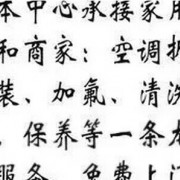 本中心承接家用
和商家：空调拆
装、加氟、清洗
、保养等一条龙
服务，免费上门